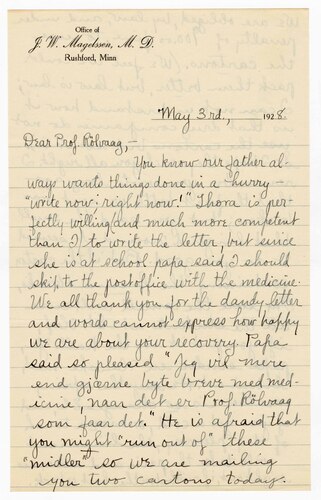 Office of
J. W. Magelssen, M. D.
Rushford, Minn
May 3rd, 1928.
Dear Prof. Rölvaag,-
You know our father al-
ways wants things done in a hurry-
"write now-right now!" Thora is per-
fectly willing and much more competent
than I to write the letter, but since
she is at school papa said I should
skip to the postoffice with the medicine.
We all thank you for the dandy letter
and words cannot express how happy
we are about your recovery. Papa
said so pleased "Jeg vil mere
end gjærne byte breve med med-
icine, naar det er Prof. Rölvaag
som faar det." He is afraid that
you might "run out of" these
"midler" so we are mailing
you two cartons today.